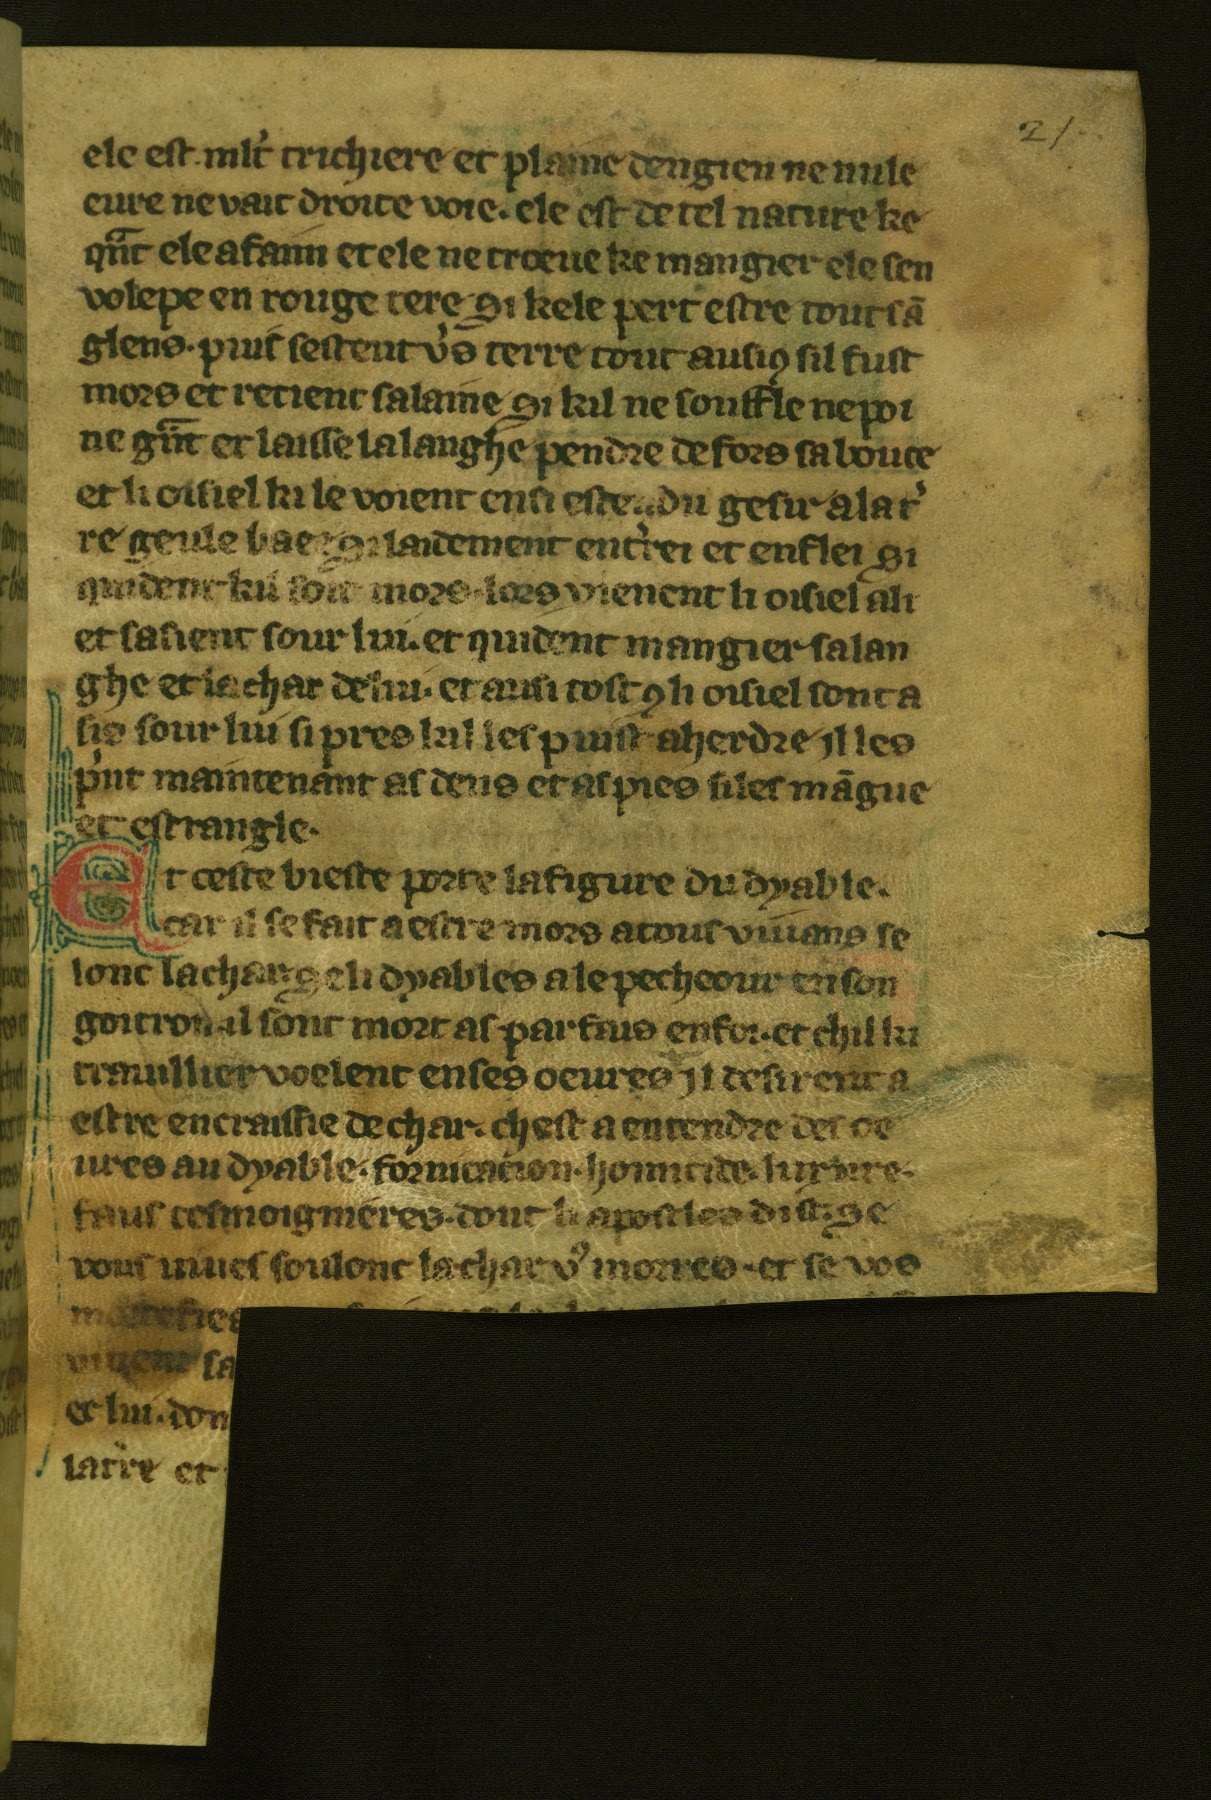 21
ele est mlt' trichiere et plaine dengien ne nule
eure ne vait droite voie. ele est de tel nature ke
qñt ele a faim et ele ne troeue ke mangier ele sen
volepe en rouge tere si kele pert estre tout sā
glens. puis sestent v's terre tout ausi ꝯ sil fust
mors et retient salaine si kil ne souffle ne poi
ne gñt et laisse la langhe pendre defors sa bouce
et li oisiel ki le voient ensi estendu gesir a la t'
re geule baee si laidement ent'rei et enflei si
quident kil soit mors. lors vienent li oisiel a li
et sasient sour lui. et quident mangier sa lan
ghe et la char de lui. et ausi tost ꝯ li oisiel sont a
sis sour lui si pres kil les puist aherdre il les
p'nt maintenant as dens et as pies si les māgue
et estrangle.
Et ceste bieste porte la figure du dyable.
car il se fait a estre mors a tous viuans se
lonc la char se li dyables a le pecheour en son
goitron il sont mort as parfais en foi. et chil ki
trauillier voelent en ses oeures il desirent a
estre encraissie de char. chest a entendre des oe
ures au dyable. fornication. homicide. luxure.
faus tesmoignieres. dont li apostles dist. se
vous uiues soulonc la char v9 morres. et se vos
mortefies
viuent sa
et lui. don
la t're et